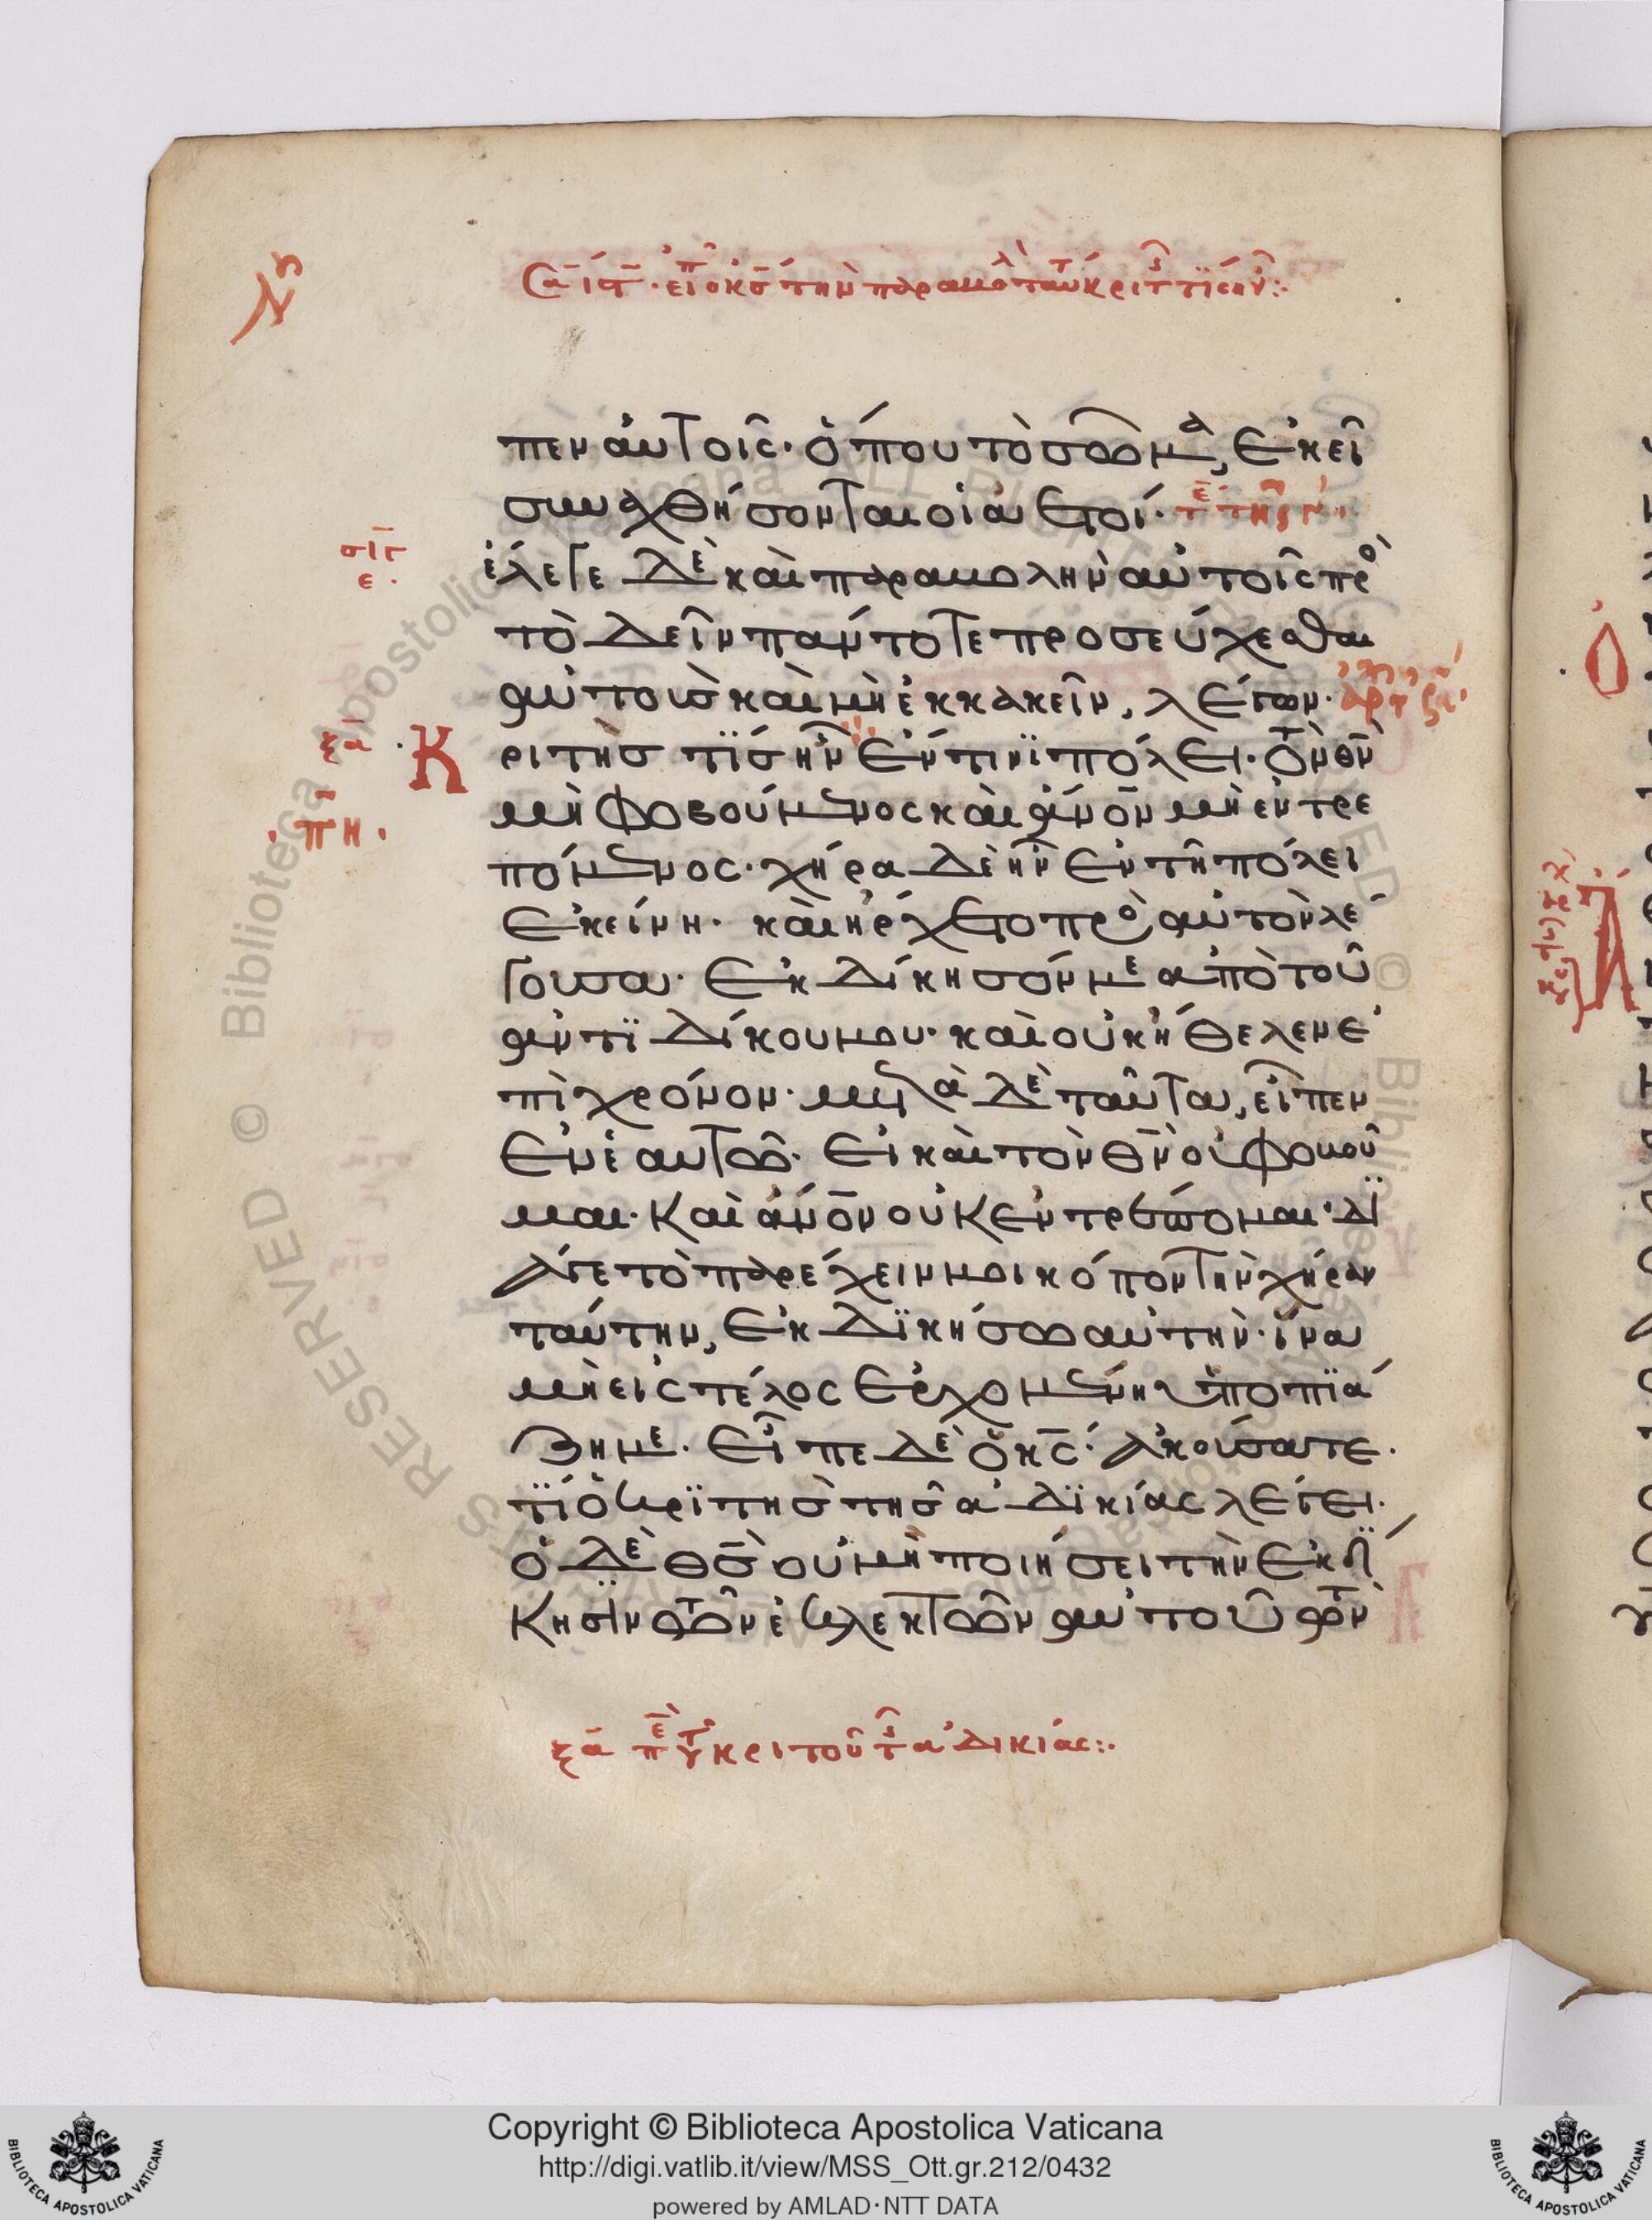 πεν αὐτοῖς· ὅπου τὸ σῶμα, ἐκεῖ
συναχθήσονται οἱ ἀετοί·
ἔλεγε δὲ καὶ παραβολὴν αὐτοῖς πρὸ
τὸ δεῖν πάντοτε προσεύχεσθαι
αὐτοὺς καὶ μὴ ἐκκακεῖν, λέγων·
σιγ
ε·
ξα
Κριτὴσ τὶσ ἦν ἔν τινι πόλει· τὸν θν
πη
μὴ φοβούμενος καὶ ἀνον μὴ ἐντρε
πόμενος· χήρα δὲ ἦν ἐν τῆ πόλει
ἐκείνη· καὶ ἤρχετο πρὸς αὐτὸν λέ
γουσα· ἐκδίκησόν με ἀπὸ τοῦ
ἀντιδίκου μου· καὶ οὐκ ἤθελεν ἐ
πὶ χρόνον· μετὰ δὲ ταῦτα, εἶπεν
ἐν ἑαυτῶ· εἰ καὶ τὸν θν οὐ φοβοῦ
μαι· καὶ ἄνον οὐκ ἐντρέπομαι· δι
άγε τὸ παρέχειν μοι κόπον τὴν χήραν
ταύτην, ἐκδικήσω αὐτήν· ἵνα
μὴ εἰς τέλος ἐρχομένη ὑποπιά
ζη με· εἶπε δὲ ὁ κς· ἀκούσατε·
τί ὁ κριτὴσ τῆσ ἀδικίας λέγει·
ὁ δὲ θσ οὐ μὴ ποιήσει τὴν ἐκδί
κησιν τῶν ἐκλεκτῶν αὐτοῦ τῶν
ξα π τ κριτοῦ τ ἀδικίας:·
Copyright © Biblioteca Apostolica Vaticana
http://digi.vatlib.it/view/MSS_Ott.gr.212/0432
powered by AMLAD·NTT DATA